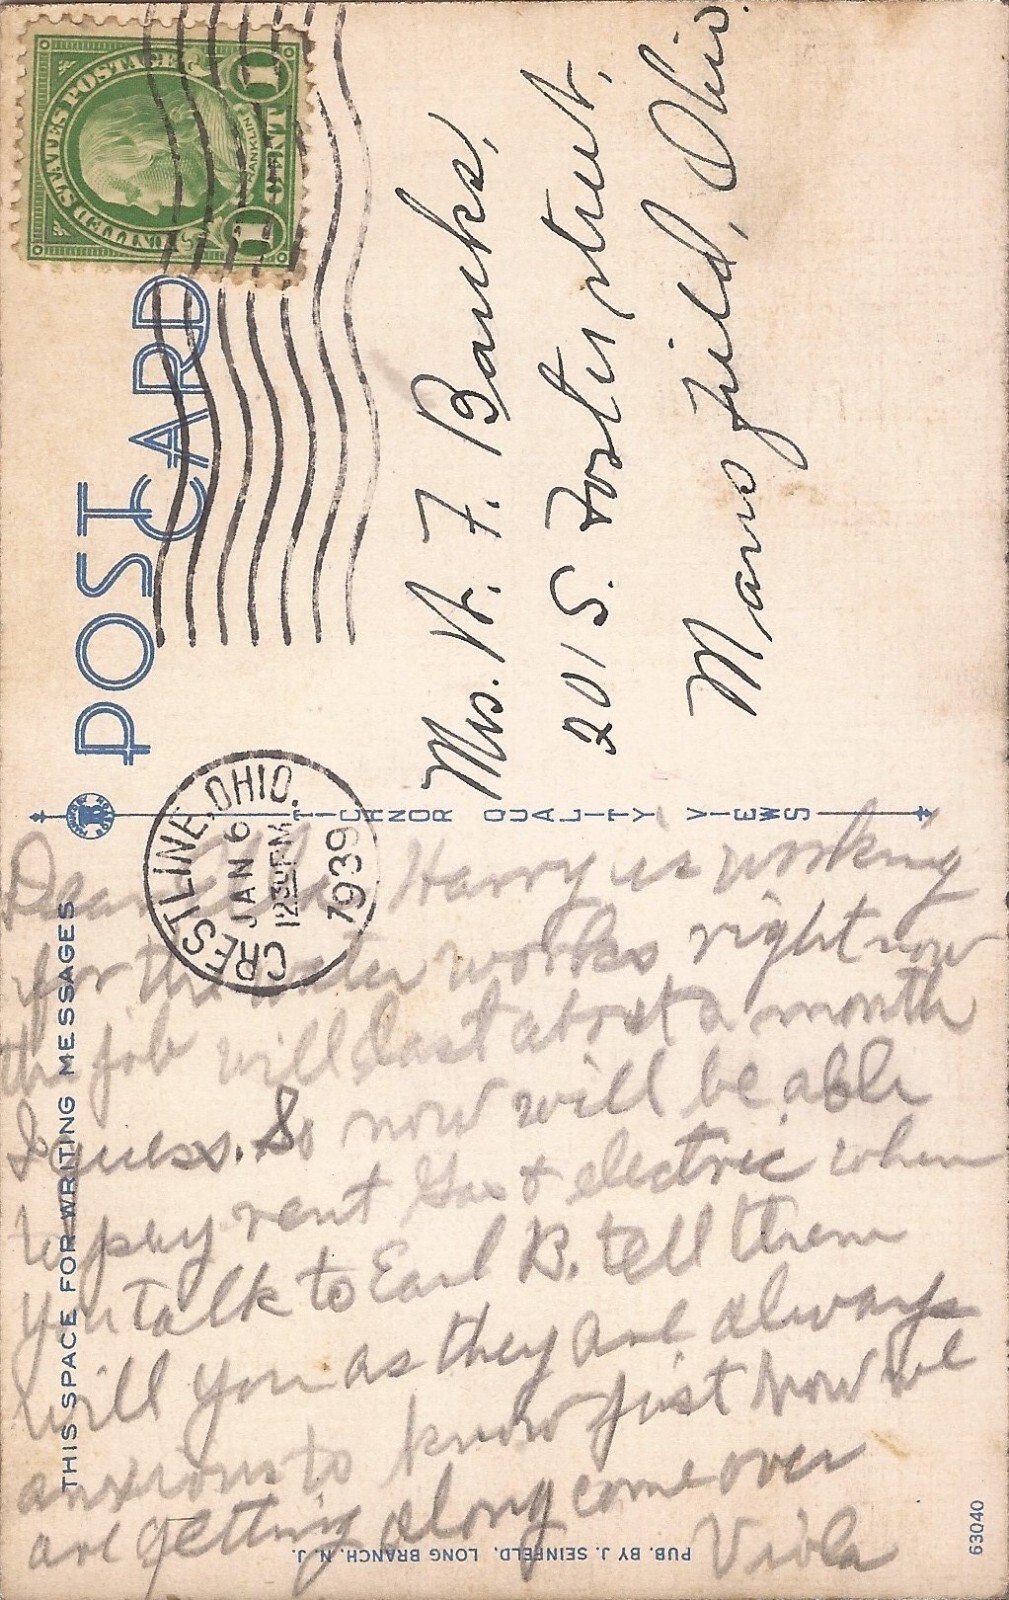 UNITED STATES POSTAGE
FRANKLIN
1 CENT 1
POST CARD
CRESTLINE, OHIO.
JAN 6
12 30 PM
1939
Mrs. W. F. Banks,
201 S. Foster street,
Mansfield, Ohio.
TICHNOR QUALITY VIEWS
THIS SPACE FOR WRITING MESSAGES
Dear Harry is working
for the water works right now
the job will last about a month
I guess. So now will be able
to pay rent Gas & electric when
you talk to Earl B. tell them
will you as they are always
anxious to know just how we
are getting along come over
Viola
PUB. BY J. SEINFELD, LONG BRANCH, N. J.
63040